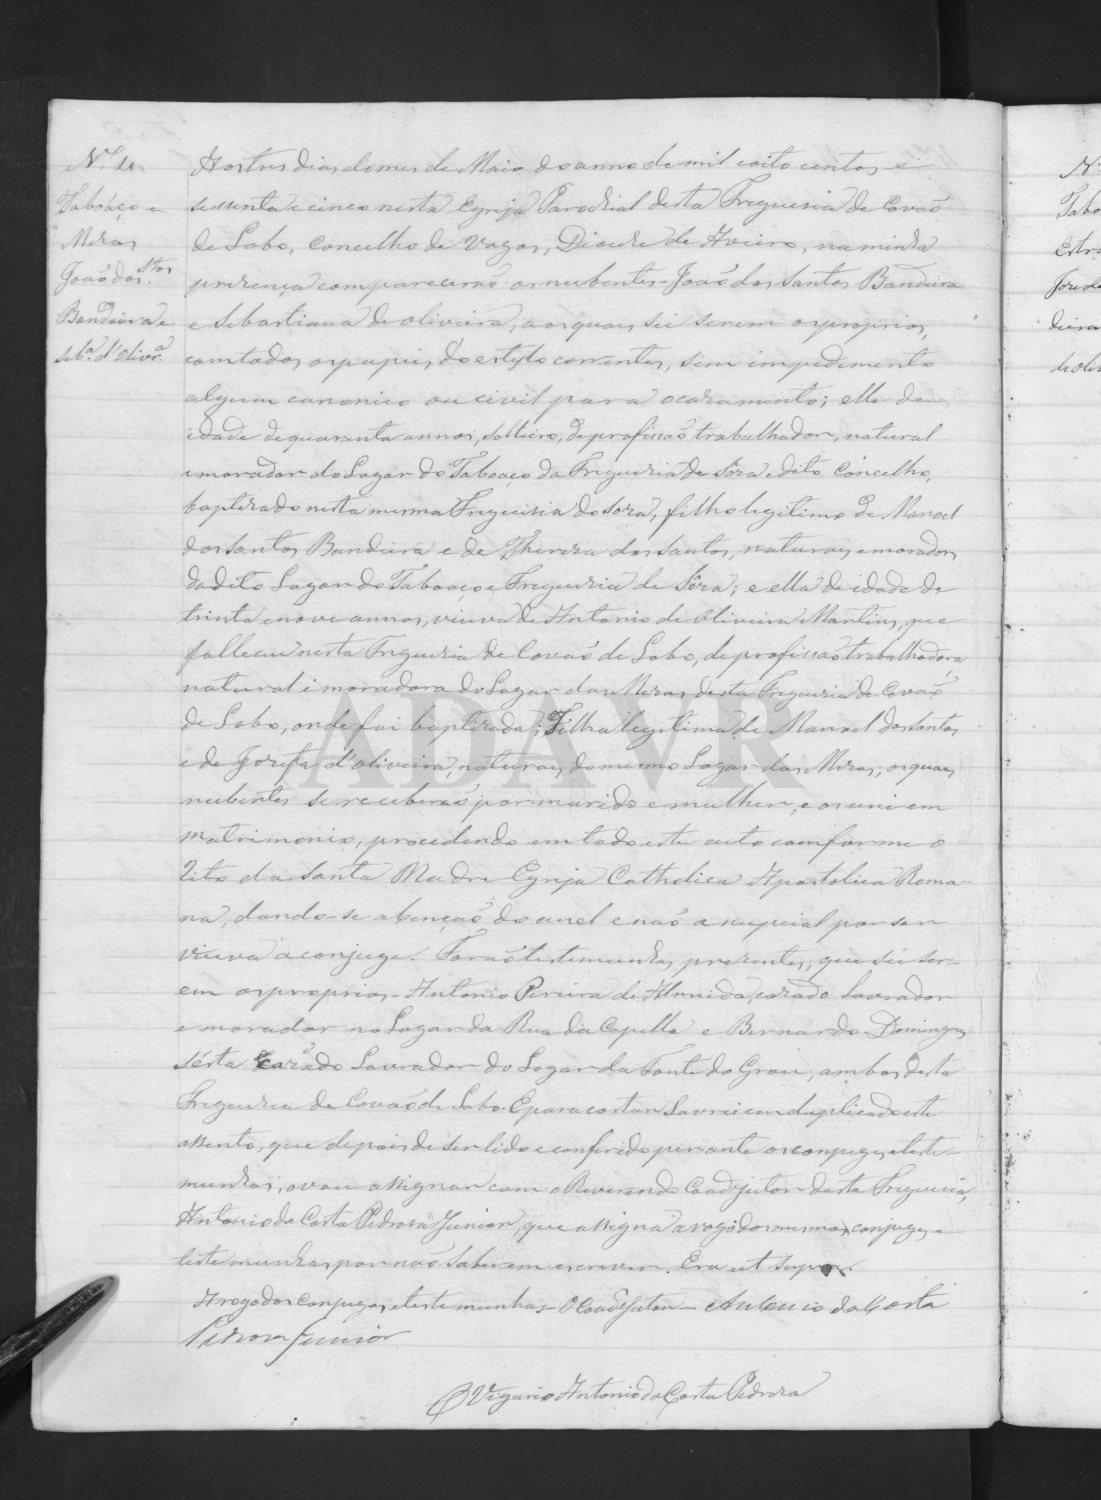 Taboaço e
Mezas
João dos Stos.
Bandeira e
Seb.ª d'Olivrª.
Aos tres dias do mes de Maio do anno de mil oito centos e
sessenta e cinco nesta Egreja Parochial desta Freguesia de Covão
de Lobo, Concelho de Vagos, Diocese de Aveiro, na minha
presença comparecerão os nubentes João dos Santos Bandeira
e Sebastiana de Oliveira, aos quaes sei serem os proprios,
com todos os papeis do estylo correntes, sem impedimento
algum canonico ou civil para o casamento; elle de
idade de quarenta annos, solteiro, de profissão trabalhador, natural
e morador do Logar do Taboaço da Freguesia de Sôza e dito Concelho,
baptizado nesta mesma Freguesia de Soza, filho legitimo de Manoel
dos Santos Bandeira e de Thereza dos Santos, naturaes e moradores
do dito Logar do Taboaço e Freguezia de Sôza; e ella de idade de
trinta e nove annos, viuva de Antonio de Oliveira Martins, que
falleceu nesta Freguezia de Covão de Lobo, de profissão trabalhadora
natural e moradora do Logar das Mezas desta Freguezia de Covão
de Lobo, onde foi baptizada; Filha legitima de Manoel dos Santos
e de Josefa d'Oliveira, naturaes do mesmo Logar das Mezas; os quaes
nubentes se receberão por marido e mulher, e os uni em
Matrimonio, procedendo em todo este acto conforme o
Rito da Santa Madre Egreja Catholica Apostolica Roma-
na, dando-se a benção do anel e não a nupcial por ser
viuva a conjuge. Forão testemunhas presentes, que sei ser-
em os proprios - Antonio Pereira de Almeida, casado Lavrador
e morador no Logar da Rua da Capella e Bernardo Domingues
Sérta casado Lavrador do Logar da Fonte do Grou, ambos desta
Freguezia de Covão de Lobo. E para constar Lavrei em duplicado este
assento, que depois de ser lido e conferido perante os conjuges e teste-
munhas, o vou assignar com o Reverendo Coadjutor desta Freguezia,
Antonio da Costa Pedroza Junior, que assigna a rogo dos mesmos conjuges e
testemunhas por não saberem escrever. Era ut supra.
A rogo dos conjuges e testemunhas - O Coadjutor - Antonio da Costa
Pedroza Junior
O Vigario Antonio da Costa Pedroza
Nº
Tabo
Estr
Joze da
deira
de Oliv
ADAVR